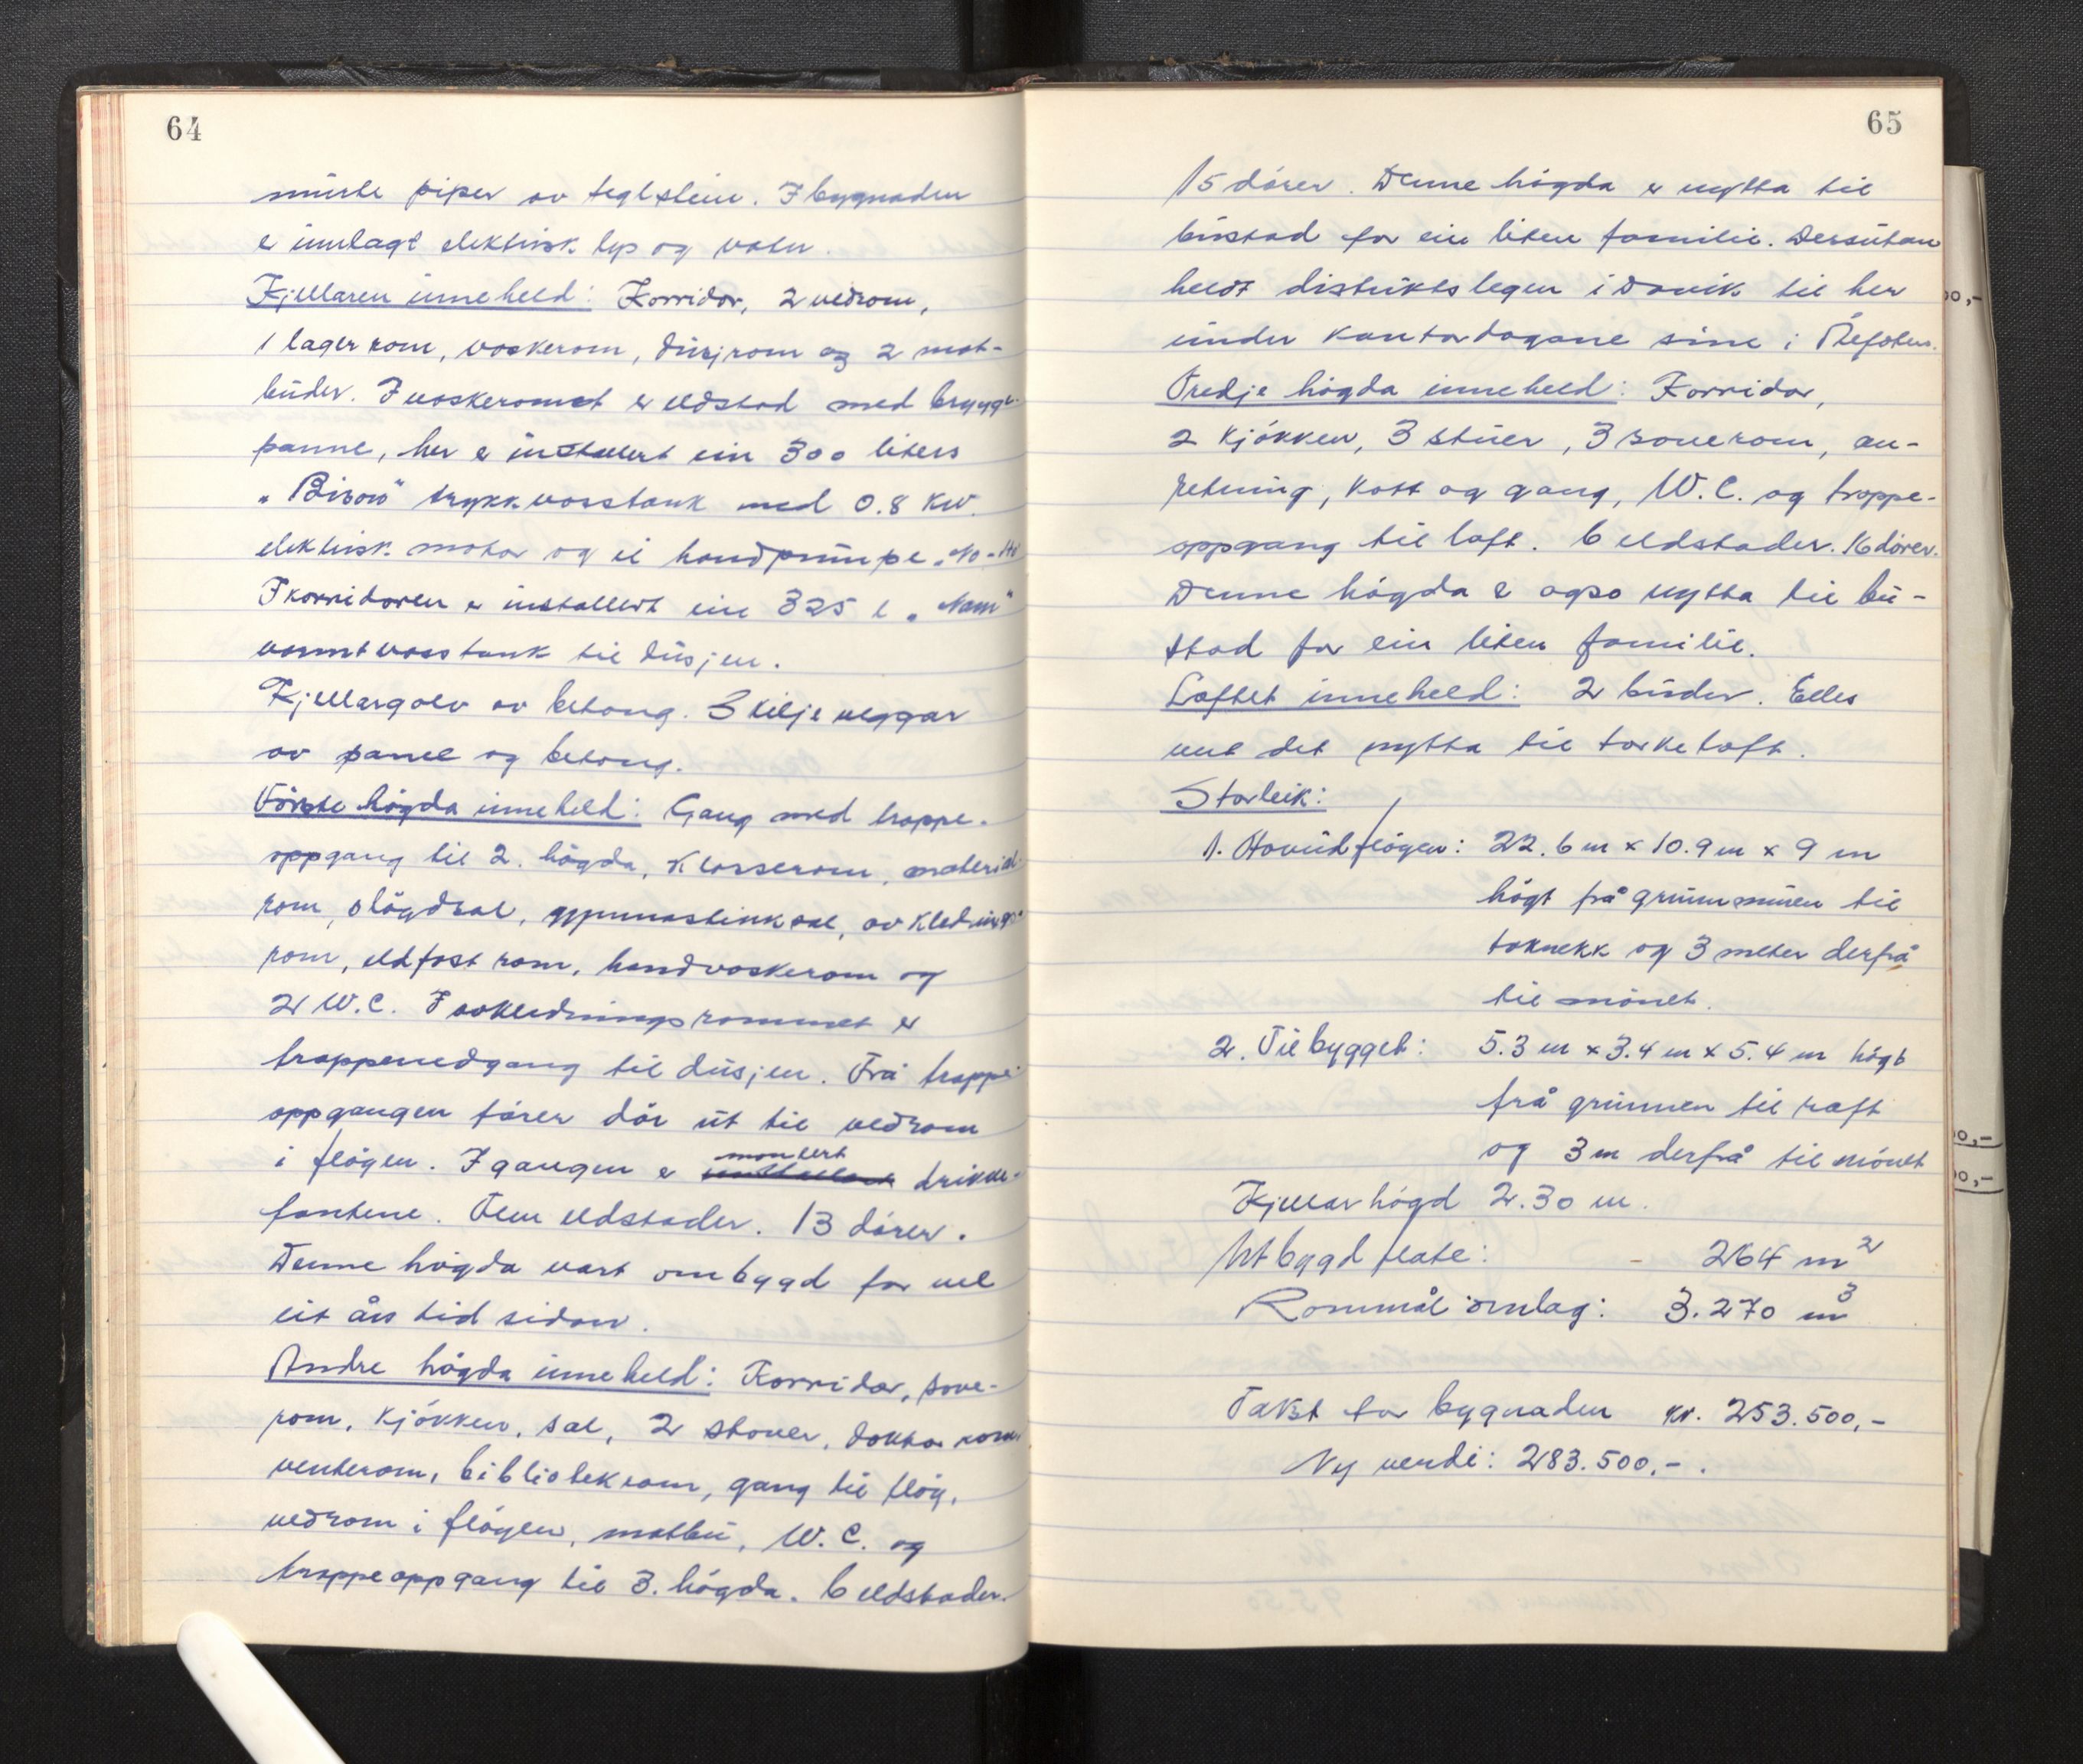 64
murte piper av teglstein. I bygnaden
er innlagt elektrisk lys og vatn.
Kjellaren inneheld: Korridor, 2 vedrom,
1 lagerrom, vaskerom, dusjrom og 2 mat-
buder. I vaskeromet er eldstad med brygge-
panne, her er installert ein 300 liters
trykkvasstank med 0.8 KW.
elektrisk motor og ei handpumpe
I korridoren er installert ein 325 l
varmtvasstank til dusjen.
Kjellargolv av betong. Skiljeveggar
av panel og betong.
Första högda inneheld: Gang med trappe-
oppgang til 2. högda, Klasserom, material-
rom, slögdsal, gymnastikksal, avkledings-
rom, eldfast rom, handvaskerom og
2 W.C. I avkledningsrommet er
trappenedgang til dusjen. Frå trappe-
oppgangen förer dör ut til vedrom
i flögen. I gangen er montert drikke-
fontene. Fem eldstader. 13 dörer.
Denne högda vart ombygd for vel
eit års tid sidan.
Andre högda inneheld: Korridor, sove-
rom, kjökken, sal, 2 stover, doktorrom,
venterom, bibliotekrom, gang til flöy,
vedrom i flögen, matbu, W.C. og
trappeoppgang til 3. högda. 6 eldstader.
65
15 dörer. Denne högda er nytta til
bustad for ein liten familie. Dersutan
held distriktslegen i Davik til her
under kontordagane sine i
Tredje högda inneheld: Korridor,
2 kjökken, 3 stuer, 3 soverom, an-
retning, kott og gang, W.C. og trappe-
oppgang til loft. 6 eldstader. 16 dörer.
Denne högda er ogso nytta til bu-
stad for ein liten familie.
Loftet inneheld: 2 buder. Elles
vert det nytta til törkeloft.
Storleik:
1. Hovudflögen: 22.6 m x 10.9 m x 9 m
högt frå grunnmuren til
taknekk og 3 meter derfrå
til mönet.
2. Tilbygget: 5.3 m x 3.4 m x 5.4 m högt
frå grunnen til raft
og 3 m derfrå til mönet
Kjellarhögd 2.30 m.
Utbygd flate: - 264 m²
Rommål omlag: 3.270 m³
Takst for bygnaden kr. 253.500,-
Ny verdi: 283.500,-.
00,-
00,-
00,-